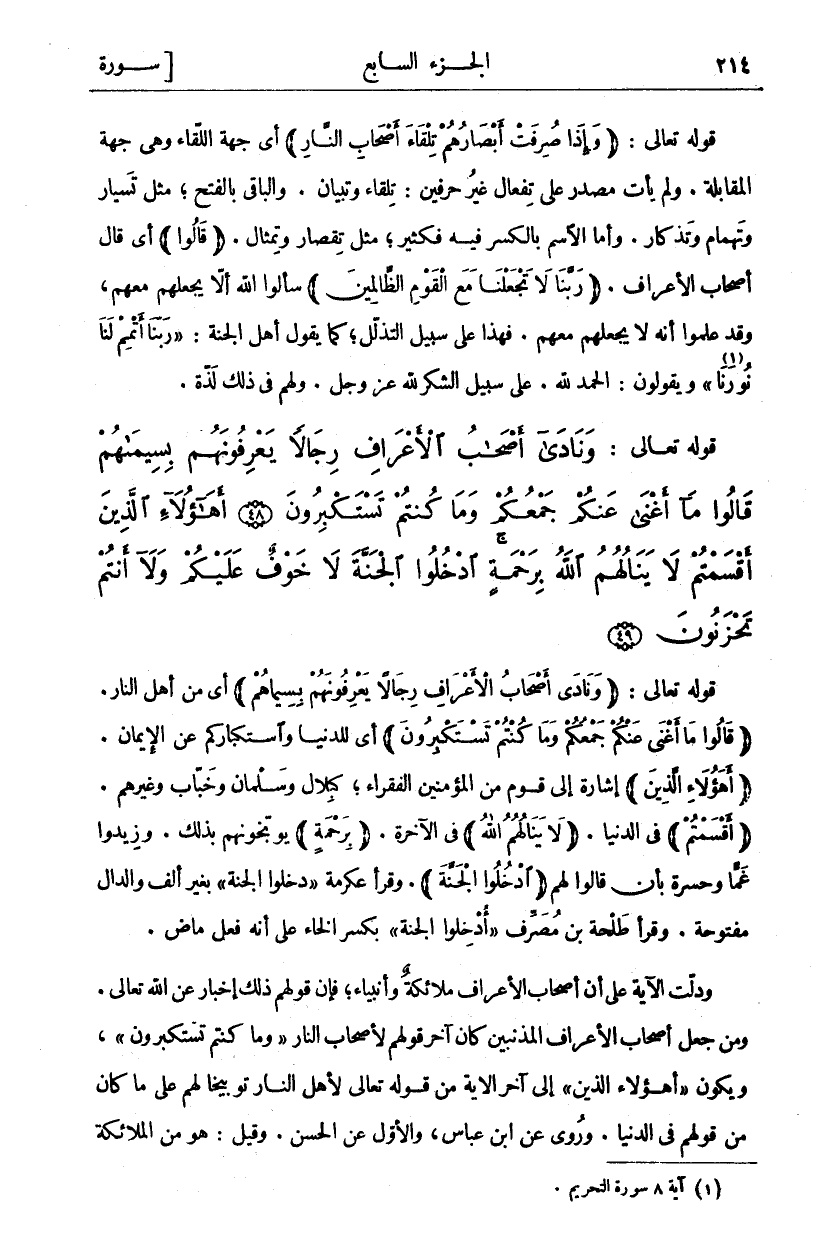 ٢١٤ الجزء السابع [ سورة
قوله تعالى : ﴿ وَإِذَا صُرِفَتْ أَبْصَارُهُمْ تِلْقَاءَ أَصْحَابِ النَّارِ ﴾ أى جهة اللّقاء وهى جهة
المقابلة . ولم يأت مصدر على تِفعال غيرُ حرفين : تِلقاء وتِبيان . والباقى بالفتح ؛ مثل تَسيار
وتَهمام وتَذكار . وأما الآسم بالكسر فيه فكثير ؛ مثل تِقصار وتِمثال . ﴿ قَالُوا ﴾ أى قال
أصحاب الأعراف . ﴿ رَبَّنَا لَا تَجْعَلْنَا مَعَ الْقَوْمِ الظَّالِمِينَ ﴾ سألوا الله ألّا يجعلهم معهم ،
وقد علموا أنه لا يجعلهم معهم . فهذا على سبيل التذلّل ؛ كما يقول أهل الجنة : «رَبَّنَا أَتْمِمْ لَنَا
نُورَنَا» (١) ويقولون : الحمد لله . على سبيل الشكر لله عز وجل . ولهم فى ذلك لَذّة .
قوله تعالى : وَنَادَىٰٓ أَصْحَـٰبُ ٱلْأَعْرَافِ رِجَالًا يَعْرِفُونَهُم بِسِيمَـٰهُمْ
قَالُوا مَآ أَغْنَىٰ عَنكُمْ جَمْعُكُمْ وَمَا كُنتُمْ تَسْتَكْبِرُونَ ﴿٤٨﴾ أَهَـٰٓؤُلَآءِ ٱلَّذِينَ
أَقْسَمْتُمْ لَا يَنَالُهُمُ ٱللَّهُ بِرَحْمَةٍ ۚ ٱدْخُلُوا ٱلْجَنَّةَ لَا خَوْفٌ عَلَيْكُمْ وَلَآ أَنتُمْ
تَحْزَنُونَ ﴿٤٩﴾
قوله تعالى : ﴿ وَنَادَى أَصْحَابُ الْأَعْرَافِ رِجَالًا يَعْرِفُونَهُمْ بِسِيمَاهُمْ ﴾ أى من أهل النار .
﴿ قَالُوا مَا أَغْنَى عَنْكُمْ جَمْعُكُمْ وَمَا كُنْتُمْ تَسْتَكْبِرُونَ ﴾ أى للدنيا وآستكباركم عن الإيمان .
﴿ أَهَؤُلَاءِ الَّذِينَ ﴾ إشارة إلى قوم من المؤمنين الفقراء ؛ كبِلال وسَلْمان وخَبّاب وغيرهم .
﴿ أَقْسَمْتُمْ ﴾ فى الدنيا . ﴿ لَا يَنَالُهُمُ اللهُ ﴾ فى الآخرة . ﴿ بِرَحْمَةٍ ﴾ يوبّخونهم بذلك . وزيدوا
غَمًّا وحسرة بأن قالوا لهم ﴿ ٱدْخُلُوا الْجَنَّةَ ﴾ . وقرأ عكرمة «دخلوا الجنة» بغير ألف والدال
مفتوحة . وقرأ طَلْحة بن مُصَرِّف «أُدْخِلوا الجنة» بكسر الخاء على أنه فعل ماض .
ودلّت الآية على أن أصحاب الأعراف ملائكةٌ وأنبياء ؛ فإن قولهم ذلك إخبار عن الله تعالى .
ومن جعل أصحاب الأعراف المذنبين كان آخر قولهم لأصحاب النار «وما كنتم تستكبرون» ،
ويكون «أهؤلاء الذين» إلى آخر الاية من قوله تعالى لأهل النار توبيخا لهم على ما كان
من قولهم فى الدنيا . ورُوى عن ابن عباس ، والأوّل عن الحسن . وقيل : هو من الملائكة
(١) آية ٨ سورة التحريم .